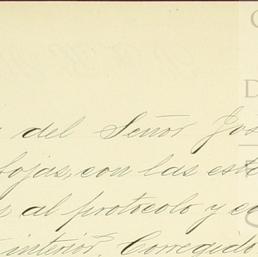 del Señor Jos
hojas, con las est
al protocolo y co
interior. Corregido